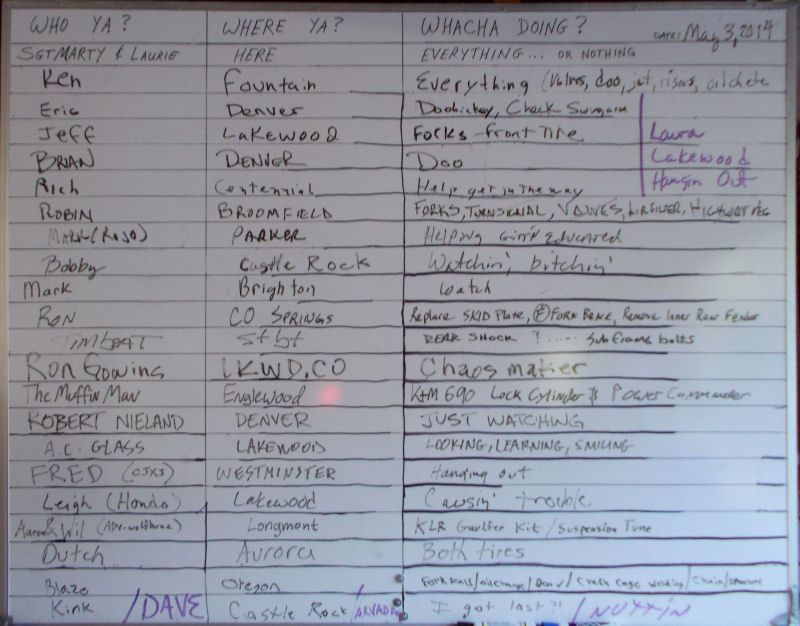 WHO YA? WHERE YA? WHACHA DOING? DATE: May 3, 2014
SGT MARTY & LAURIE HERE EVERYTHING ... OR NOTHING
Ken Fountain Everything (Valves, doo, jet,
Eric Denver Doohickey, Check
Jeff Lakewood Forks - front Tire Laura
BRIAN DENVER Doo Lakewood
Rich Centennial Help get in the way Hangin Out
ROBIN BROOMFIELD FORKS, TURNSIGNAL, VALVES, AIRFILTER, HIGHWAY PEG
MARK (ROJO) PARKER HELPING EDUCATED
Bobby Castle Rock Watchin', bitchin'
Mark Brighton watch
RON CO SPRINGS Replace SKID Plate, (F) FORK Remove Iner Rear Fender
REAR SHOCK ? ..... Subframe bolts
Ron Gowins LKWD, CO Chaos maker
The Muffin Man Englewood KTM 690 Lock Cylinder & Power Commander
ROBERT NIELAND DENVER JUST WATCHING
A.C. GLASS LAKEWOOD LOOKING, LEARNING, SMILING
FRED WESTMINSTER Hanging out
Leigh (Hondo) Lakewood Causin' trouble
Aaron & Wil Longmont KLR Kit / Suspension Tune
Dutch Aurora Both tires
Blaze Oregon Fork seals / oil change / Doo / Crash Cage welding / Chain /
Kink /DAVE Castle Rock /ARVADA I got lost?! /NUTTIN